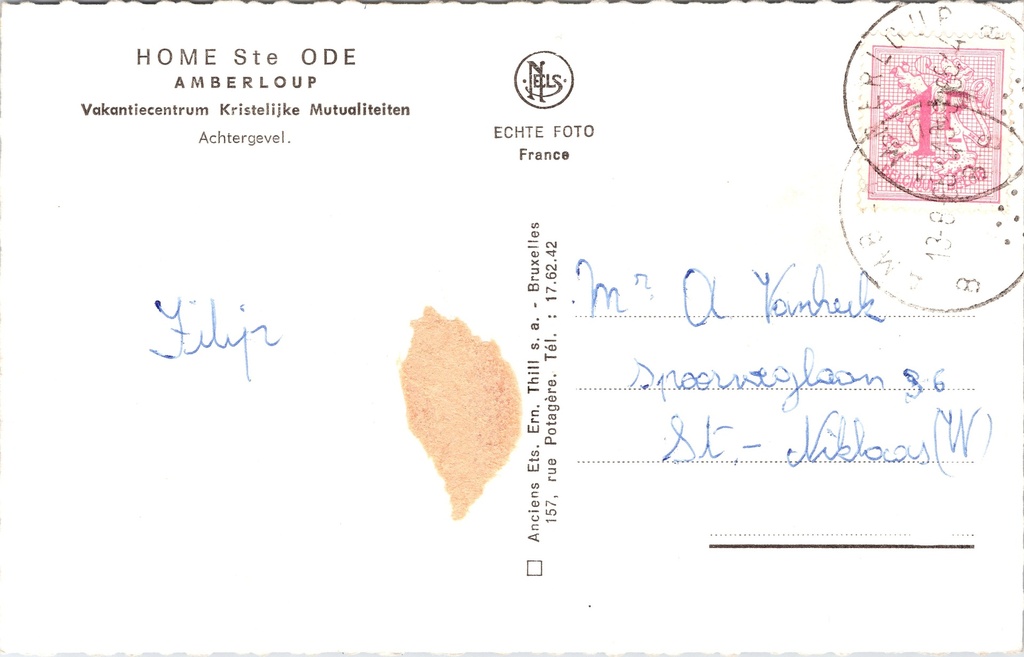 HOME Ste ODE
AMBERLOUP
Vakantiecentrum Kristelijke Mutualiteiten
Achtergevel.
NELS
ECHTE FOTO
France
AMBERLOUP
13-8
1F
Filip
Anciens Ets. Ern. Thill s. a. - Bruxelles
157, rue Potagère. Tél. : 17.62.42
Mr. A Vanherk
Spoorweglaan 36
St.- Niklaas (W)